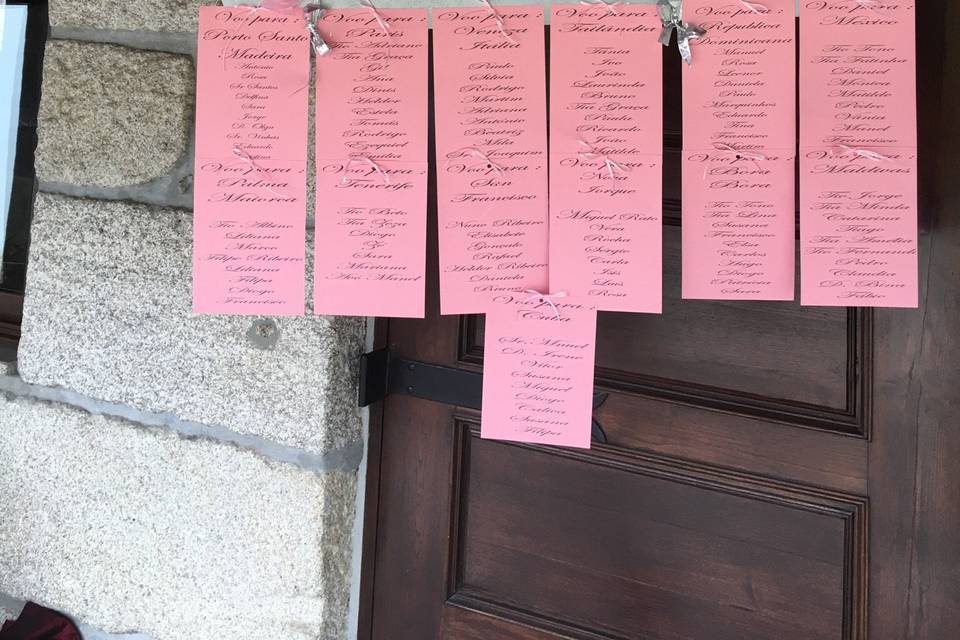 Voo para :
Porto Santo
Madeira
António
Rosa
Sr Santos
Delfina
Sara
Jorge
D. Olga
Sr. Vinhas
Eduardo
Voo para :
Paris
Tio Adriano
Tia Graça
Gi
Ana
Dinis
Helder
Estela
Tomás
Rodrigo
Ezequiel
Emilia
Voo para :
Veneza
Itália
Paulo
Silvia
Rodrigo
Martim
Adriana
António
Beatriz
Mila
Sr. Joaquim
Voo para :
Tailândia
Tânia
Ivo
João
Laurinda
Bruno
Tia Graça
Paula
Ricardo
João
Voo para :
Republica
Dominicana
Manuel
Rosa
Leonor
Daniela
Paulo
Marquinhos
Eduardo
Tina
Francisco
Martim
México
Tio Tono
Tia Fatinha
Daniel
Mónica
Matilde
Pedro
Vania
Manel
Francisco
Voo para :
Palma
Maiorca
Tio Albino
Liliana
Marco
Filipe Ribeiro
Liliana
Filipa
Diogo
Francisco
Voo para :
Tenerife
Tio Beto
Tia Zeza
Diogo
Zé
Sara
Mariana
Avo Manel
Voo para :
San
Francisco
Nuno Ribeiro
Elisabete
Gonçalo
Rafael
Helder Ribeiro
Daniela
Bruno
Voo para :
Nova
Jorque
Miguel Rato
Vera
Rocha
Sergio
Carla
Isis
Luis
Rosa
Voo para :
Bora
Bora
Tio Tono
Tia Lina
Susana
Francisco
Elsa
Carlos
Hugo
Diogo
Patricia
Sara
Voo para :
Maldivas
Tio Jorge
Tia Mirula
Catarina
Tiago
Tia Amelia
Tio Fernando
Pedro
Claudia
D. Bina
Fabio
Voo para :
Cuba
Sr. Mnuel
D. Irene
Vitor
Susana
Miguel
Diogo
Calica
Susana
Filipa